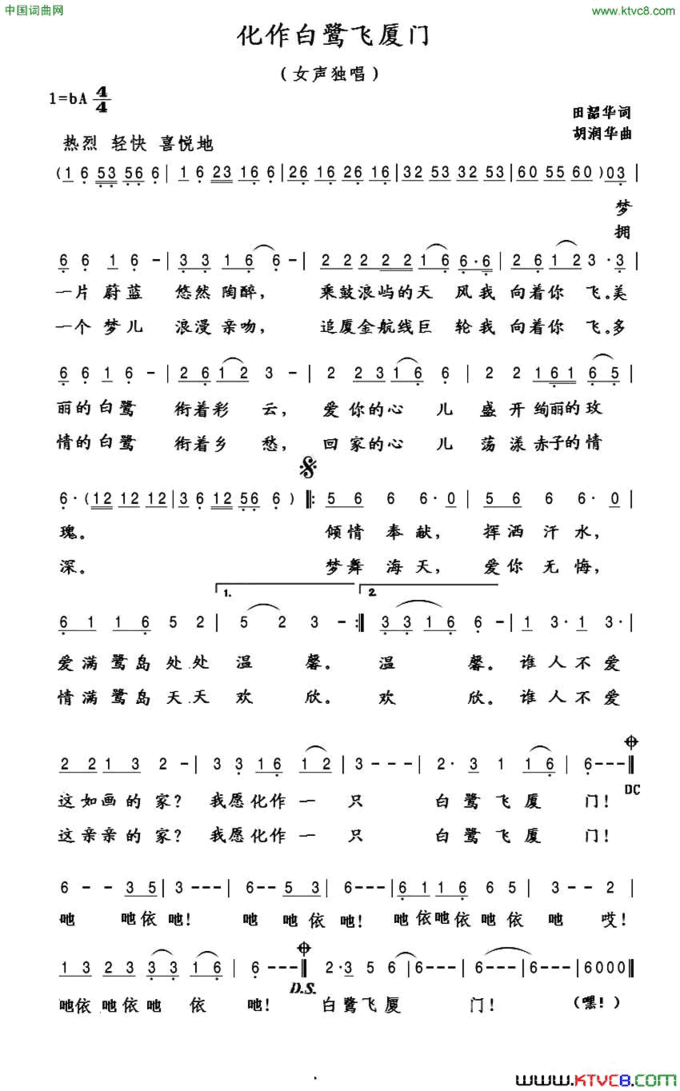 中国词曲网
www.ktvc8.com
化作白鹭飞厦门
(女声独唱)
1=bA 4/4
田韶华词
热烈 轻快 喜悦地
胡润华曲
(1 6 53 56 6 | 1 6 23 16 6 | 26 16 26 16 | 32 53 32 53 | 60 55 60 ) 03 |
梦
拥
6 6 1 6 - | 3 3 1 6 6 - | 2 2 2 2 2 1 6 6·6 | 2 6 1 2 3·3 |
一片 蔚蓝 悠然 陶醉, 乘鼓浪屿的天 风我 向着你 飞。美
一个 梦儿 浪漫 亲吻, 追厦金航线巨 轮我 向着你 飞。多
6 6 1 6 - | 2 6 1 2 3 - | 2 2 3 1 6 6 | 2 2 1 6 1 6 5 |
丽的白鹭 衔着彩 云, 爱你的心 儿 盛开绚丽的玫
情的白鹭 衔着乡 愁, 回家的心 儿 荡漾赤子的情
6·(12 12 12 | 3 6 12 56 6 ) ‖: 5 6 6 6·0 | 5 6 6 6·0 |
瑰。 倾情 奉献, 挥洒 汗水,
深。 梦舞 海天, 爱你 无悔,
1. 2.
6 1 1 6 5 2 | 5 2 3 - :‖ 3 3 1 6 6 - | 1 3· 1 3· |
爱满鹭岛处处 温 馨。 温 馨。谁人不爱
情满鹭岛天天 欢 欣。 欢 欣。谁人不爱
2 2 1 3 2 - | 3 3 1 6 1 2 | 3 - - - | 2· 3 1 1 6 | 6 - - - ‖
DC
这如画的家? 我愿化作 一 只 白鹭飞厦 门!
这亲亲的家? 我愿化作 一 只 白鹭飞厦 门!
6 - - 3 5 | 3 - - - | 6 - - 5 3 | 6 - - - | 6 1 1 6 6 5 | 3 - - 2 |
吔 吔依吔! 吔 吔依吔! 吔依吔依吔依吔 哎!
1 3 2 3 3 1 6 | 6 - - - ‖ 2·3 5 6 | 6 - - - | 6 - - - | 6000 ‖
D.S.
吔依吔依吔 依 吔! 白鹭飞厦 门! (嘿!)
www.KTVC8.com